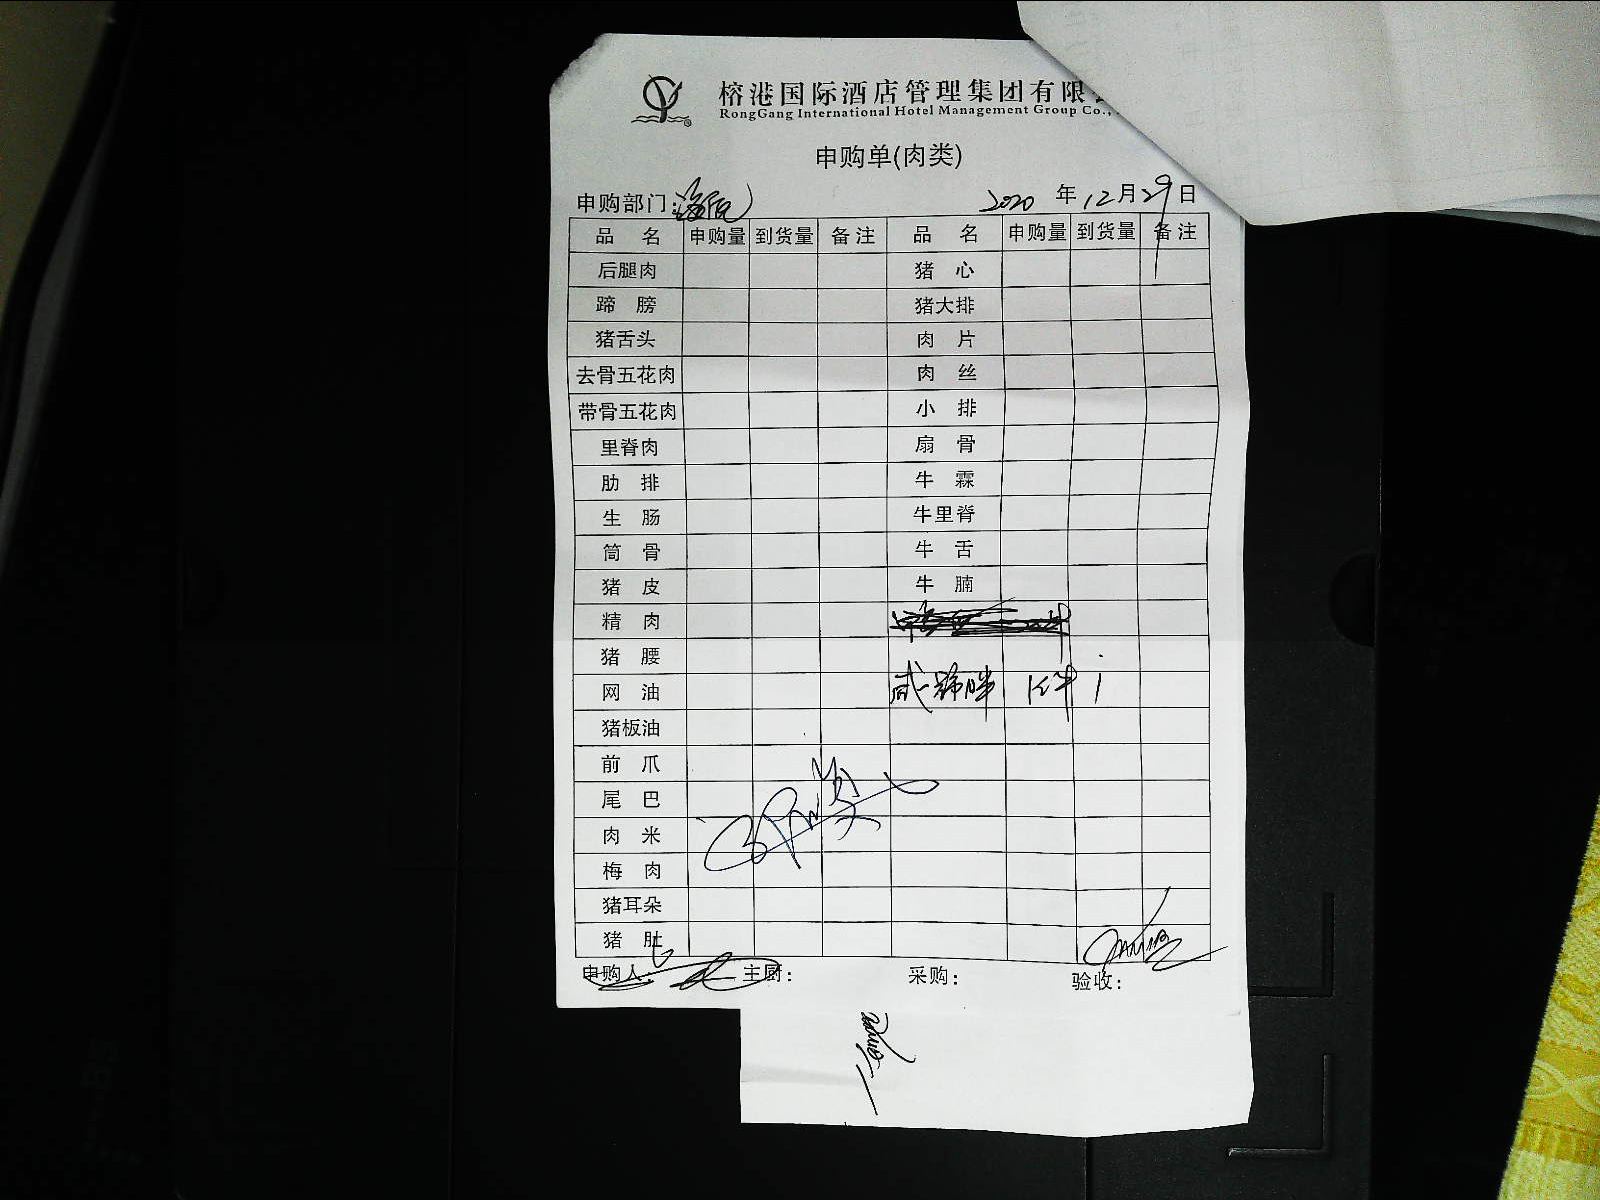 榕港国际酒店管理集团有限
RongGang International Hotel Management Group Co.,
申购单(肉类)
申购部门: 2020 年 12 月 29 日
品 名 申购量 到货量 备注 品 名 申购量 到货量 备注
后腿肉 猪 心
蹄 膀 猪大排
猪舌头 肉 片
去骨五花肉 肉 丝
带骨五花肉 小 排
里脊肉 扇 骨
肋 排 牛 霖
生 肠 牛里脊
筒 骨 牛 舌
猪 皮 牛 腩
精 肉
猪 腰
网 油
猪板油
前 爪
尾 巴
肉 米
梅 肉
猪耳朵
猪 肚
申购人: 主厨: 采购: 验收: